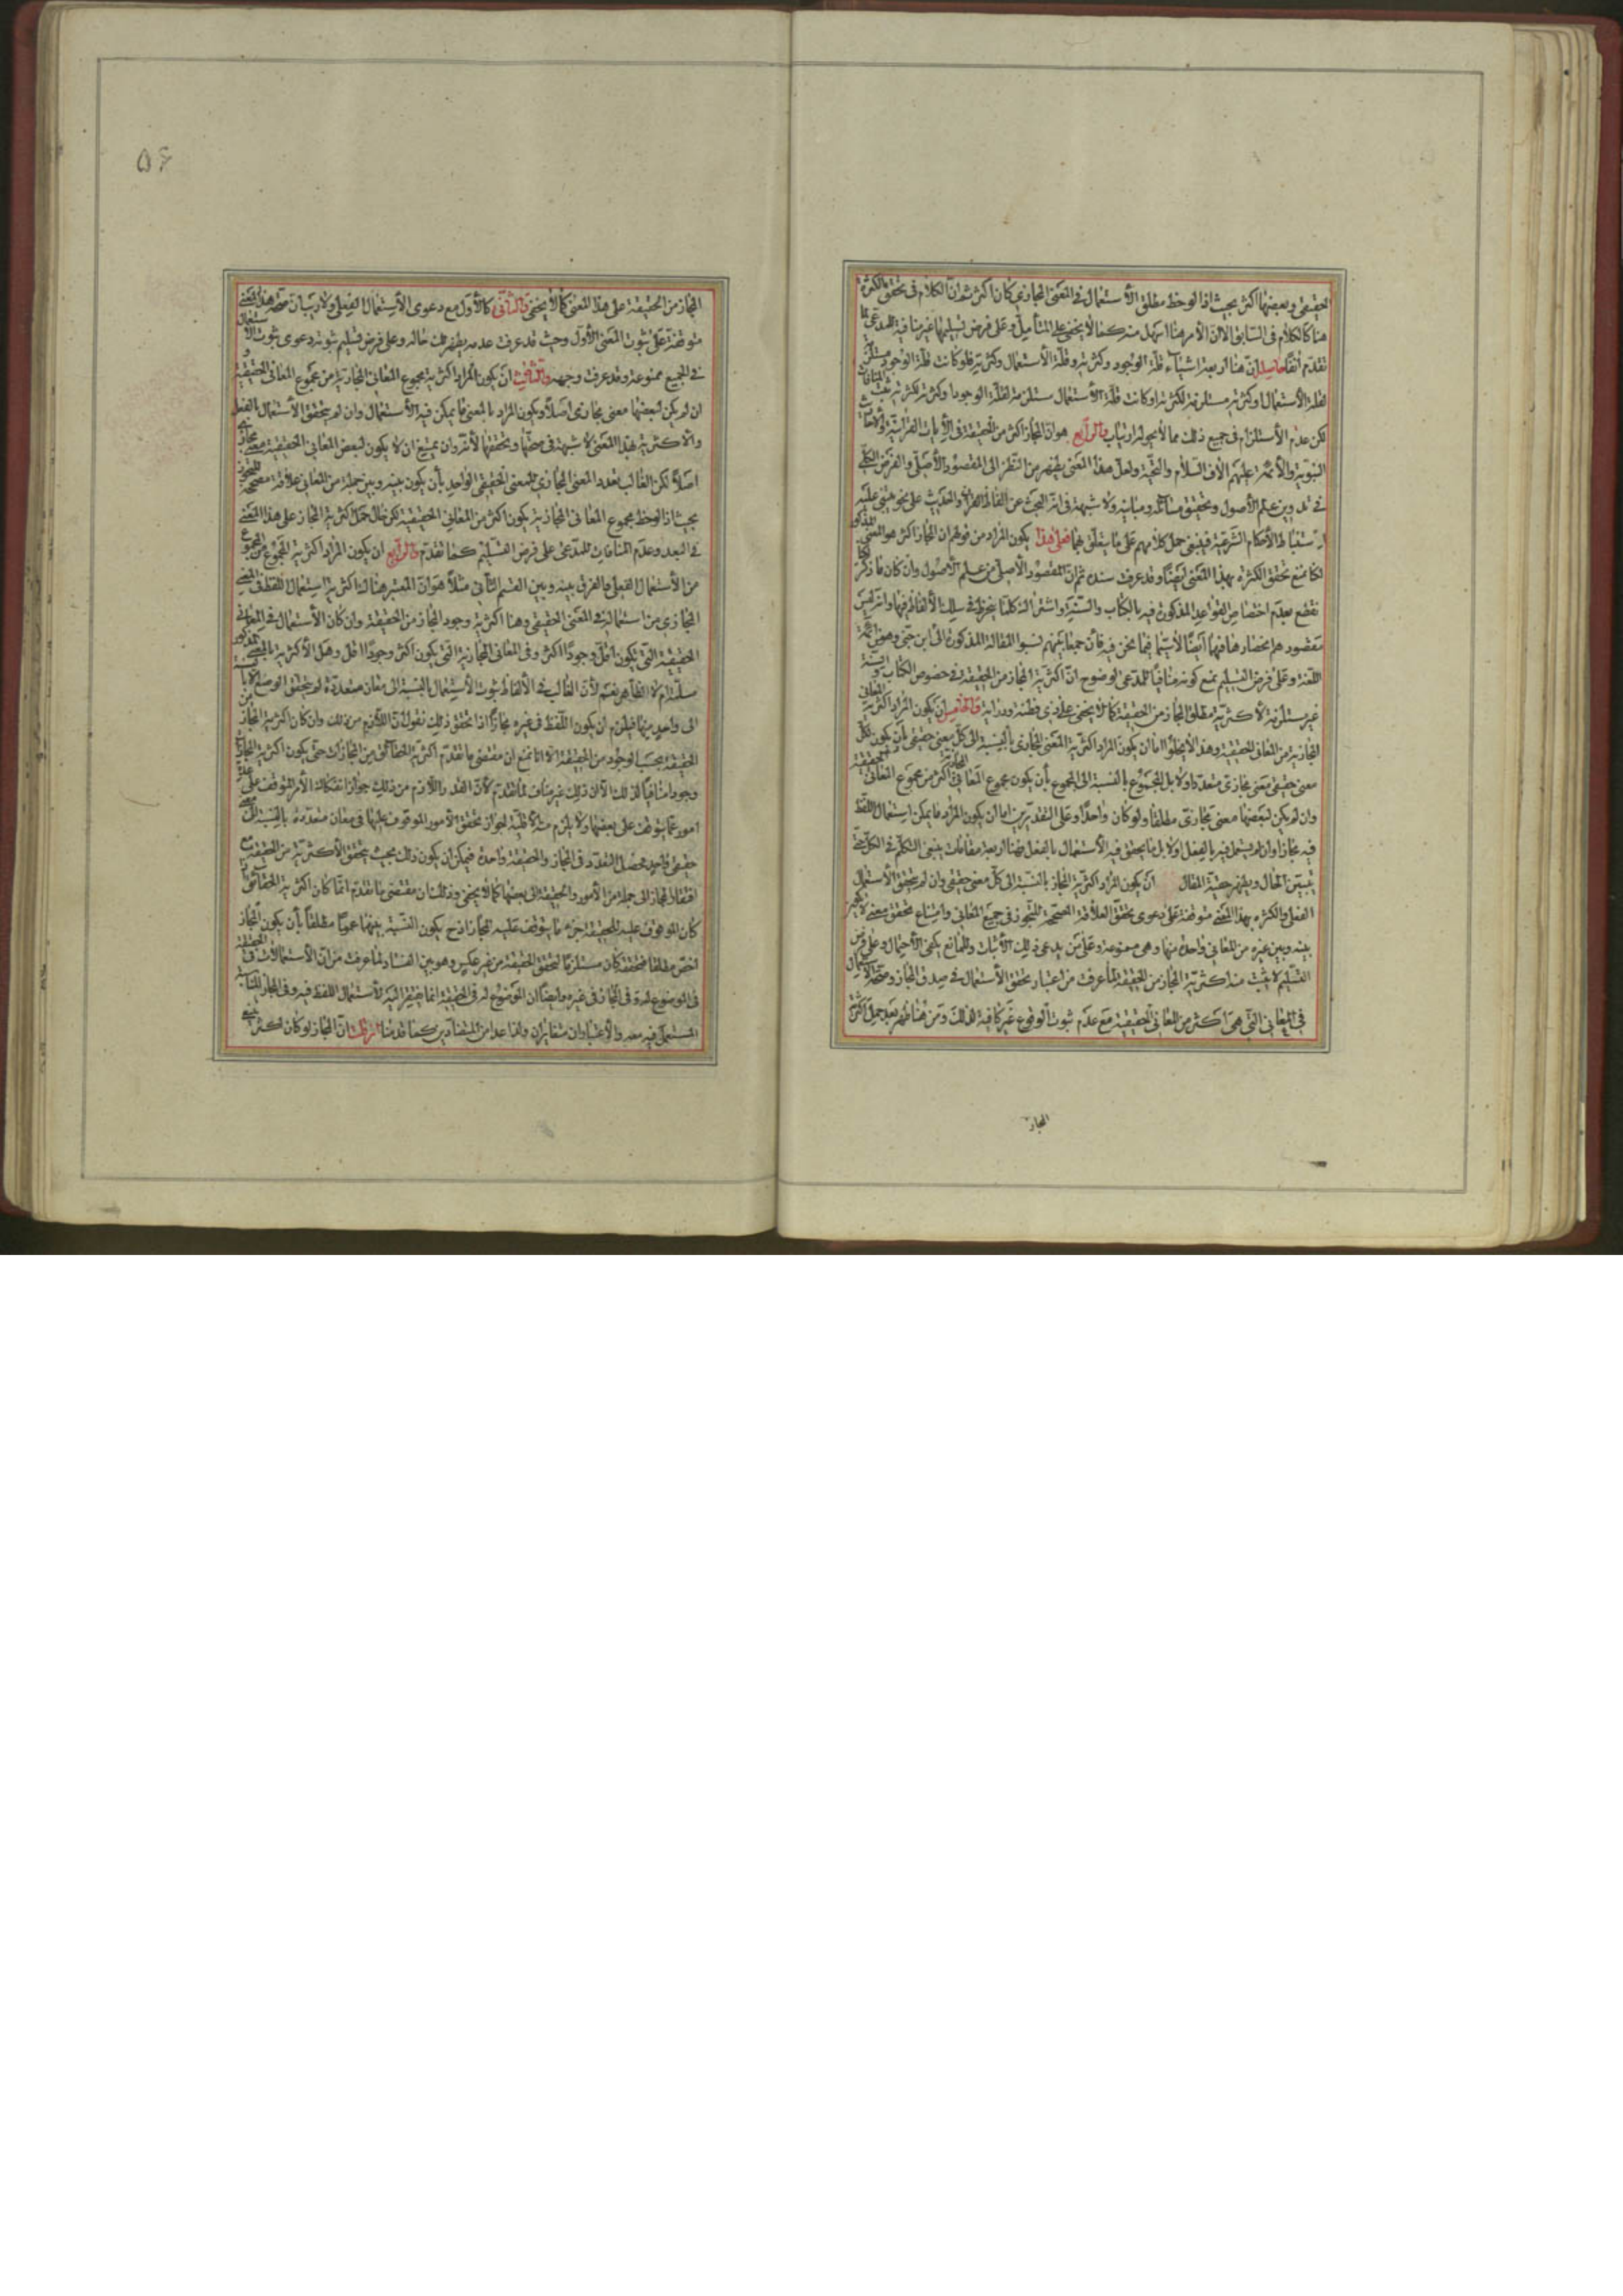 الحقيقي وبعضها اكثر بحيث اذا لوحظ مطلق الأستعمال في المعنى المجازي كان اكثر ثم ان الكلام في تحقق الكثرة
هنا كالكلام في السابق الا ان الأمر هنا اسهل منه كما لا يخفى على المتأمل وعلى فرض تسليمها غير منافية للمدعى لما
تقدم انفا حاصله ان هنا اربعة اشياء قلة الوجود وكثرته وقلة الأستعمال وكثرته فلو كانت قلة الوجود مستلزمة
لقلة الأستعمال وكثرته مستلزمة لكثرته او كانت قلة الأستعمال مستلزمة لقلة الوجود وكثرته لكثرته ثبت المنافات
لكن عدم الأستلزام في جميع ذلك مما لا يحوله ارتياب والرابع هو ان المجاز اكثر من الحقيقة في الأيات القرانية والأحاديث
النبوية والأئمة عليهم الاف السلام والتحية ولعل هذا المعنى يظهر من النظر الى المقصود الأصلي والغرض الكلي
في تدوين علم الأصول وتحقيق مسائله ومبانيه ولا شبهة في انه البحث عن الفاظ القران والحديث على نحو يبتنى عليه
استنباط الأحكام الشرعية فينبغي حمل كلامهم على ما يتعلق بهما فعلى هذا يكون المراد من قولهم ان المجاز اكثر هو المعنى المذكور
لكنا نمنع تحقق الكثرة بهذا المعنى ايضا وقد عرفت سنده ثم ان المقصود الأصلي من علم الأصول وان كان ما ذكر لكنا
نقطع بعدم اختصاص القواعد المذكورة فيه بالكتاب والسنة واشتراك كلما ينخرط في سلك الألفاظ فيها وانه ليس
مقصودهم انحصارها فيهما ايضا لا سيما فيما نحن فيه فان جميعا منهم نسبوا المقالة المذكورة الى ابن جني وهو من ائمة
اللغة وعلى فرض التسليم نمنع كونه منافيا للمدعى لوضوح ان اكثرية المجاز من الحقيقة في خصوص الكتاب والسنة
غير مستلزمة لأكثرية مطلق المجاز من الحقيقة كما لا يخفى على ذي فطنة ودراية والخامس ان يكون المراد اكثرية المعاني
المجازية من المعاني الحقيقية وهذا لا يخلو اما ان يكون المراد اكثرية المعنى المجازي بالنسبة الى كل معنى حقيقي بأن يكون لكل
معنى حقيقي معنى مجازي متعددا ولا بل المجموع بالنسبة الى المجموع بأن يكون مجموع المعاني المجازية اكثر من مجموع المعاني الحقيقية
وان لم يكن لبعضها معنى مجازي مطلقا ولو كان واحدا وعلى التقديرين اما ان يكون المراد ما يمكن استعمال اللفظ
فيه مجازا وان لم يستعمل فيه بالفعل اولا بل ما يتحقق فيه الأستعمال بالفعل فهنا اربعة مقامات ينبغي التكلم في الكل حتى
يتبين الحال ويظهر حقيقة المقال ان يكون المراد اكثرية المجاز بالنسبة الى كل معنى حقيقي وان لم يتحقق الأستعمال
الفعلي والكثرة بهذا المعنى متوقفة على دعوى تحقق العلاقة المصححة للتجوز في جميع المعاني وامتناع تحقق معنى لا
بينه وبين غيره من المعاني واحدة منها وهي ممنوعة وعلى من يدعي ذلك الأثبات والمانع يكفي الأحتمال وعلى فرض
التسليم لا يثبت منه اكثرية المجاز من الحقيقة لما عرفت من اعتبار تحقق الأستعمال في صدق المجاز وصحة الأستعمال
في المعاني التي هي اكثر من المعاني الحقيقية مع عدم ثبوت الوقوع غير كافية لذلك ومن هنا ظهر بعد حمل اكثرية
المجاز
٥٦
المجاز من الحقيقة على هذا المعنى كما لا يخفى والثاني كالأول مع دعوى الأستعمال الفعلي ولا ريب ان صحة هذا المعنى
متوقفة على ثبوت المعنى الأول وحيث قد عرفت عدمه يظهر لك حاله وعلى فرض تسليم ثبوته دعوى ثبوت الأستعمال
في الجميع ممنوعة وقد عرفت وجهه والثالث ان يكون المراد اكثرية مجموع المعاني المجازية من مجموع المعاني الحقيقية و
ان لم يكن لبعضها معنى مجازي اصلا ويكون المراد بالمعنى ما يمكن فيه الأستعمال وان لم يتحقق الأستعمال بالفعل
والأكثرية بهذا المعنى لا شبهة في صحتها وتحققها لأنه وان يمتنع ان لا يكون لبعض المعاني الحقيقية معنى مجازي
اصلا لكن الغالب تعدد المعنى المجازي للمعنى الحقيقي الواحد بأن يكون بينه وبين جملة من المعاني علاقة مصححة للتجوز
بحيث اذا لوحظ مجموع المعاني المجازية يكون اكثر من المعاني الحقيقية لكن حال حمل اكثرية المجاز على هذا المعنى
في البعد وعدم المنافات للمدعى على فرض التسليم كما تقدم والرابع ان يكون المراد اكثرية المجموع من المجموع
من الأستعمال الفعلي والفرق بينه وبين القسم الثاني مثلا هو ان المعتبر هناك اكثرية استعمال اللفظ في المعنى
المجازي من استعماله في المعنى الحقيقي وهنا اكثرية وجود المجاز من الحقيقة وان كان الأستعمال في المعاني
الحقيقية التي يكون اقل وجودا اكثر وفي المعاني المجازية التي يكون اكثر وجودا اقل وهل الأكثرية بالمعنى المذكور
مسلمة ام لا الظاهر نعم لأن الغالب في الألفاظ ثبوت الأستعمال بالنسبة الى معان متعددة لم يتحقق الوضع الا بالنسبة
الى واحد منها فيلزم ان يكون اللفظ في غيره مجازا اذا تحقق ذلك نقول ان اللازم من ذلك وان كان اكثرية المجاز من
الحقيقة بحسب الوجود من الحقيقة الا انا نمنع ان مقتضى ما تقدم اكثرية الحقائق من المجازات حتى يكون اكثرية المجاز
وجودا منافيا لذلك الا ان ذلك غير مناف لما تقدم لأن القدر اللازم من ذلك جواز انفكاك الأمر المتوقف على
امور عما يتوقف على بعضها ولا يلزم منه الأغلبية لجواز تحقق الأمور الموقوف عليها في معان متعددة بالنسبة الى معنى
حقيقي واحد فيحصل التعدد في المجاز والحقيقة واحدة فيمكن ان يكون ذلك بحيث يتحقق الأكثرية من الحقيقة مع
افتقار المجاز الى جملة من الأمور والحقيقة الى بعضها كما لا يخفى وذلك ان مقتضى ما تقدم انما كان اكثرية الحقائق لو
كان الموقوف عليه للحقيقة جزء ما يتوقف عليه المجاز اذ ح يكون النسبة بينهما عموما مطلقا بأن يكون المجاز
اخص مطلقا فتحققه كان مستلزما لتحقق الحقيقة من غير عكس وهو بين الفساد لما عرفت من ان الأستعمالات في الحقيقة
في الموضوع له وفي المجاز في غيره وايضا ان الموضوع له في الحقيقة انما يفتقر اليه لأستعمال اللفظ فيه وفي المجاز لمناسبة
المستعمل فيه معه والأعتباران متغايران ولذا عدا من المتضادين كما قدمنا فان قلت ان المجاز لو كان اكثر